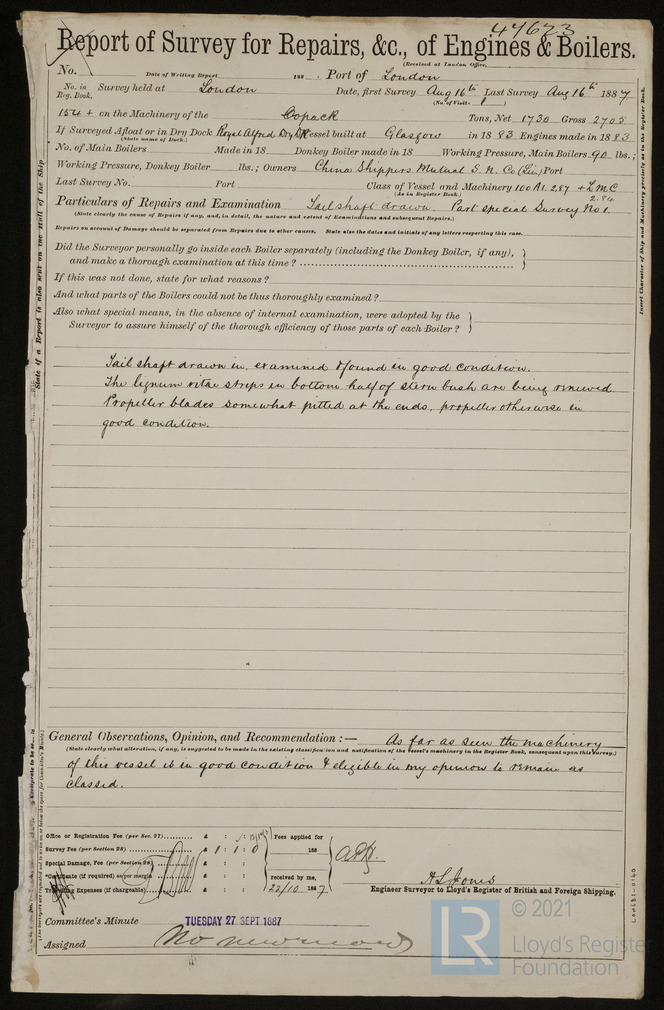 47673
Report of Survey for Repairs, &c., of Engines & Boilers.
(Received at London Office,
No. Date of Writing Report 188 . Port of London
No. in Reg. Book. Survey held at London Date, first Survey Aug 16th Last Survey Aug 16th 1887
(No. of Visits 1 )
154 + on the Machinery of the Copack Tons, Net 1730 Gross 2705
If Surveyed Afloat or in Dry Dock Royal Alfred Dry Dk Vessel built at Glasgow in 1883 Engines made in 1883
(State name of Dock.)
No. of Main Boilers Made in 18 Donkey Boiler made in 18 Working Pressure, Main Boilers 90 lbs.;
Working Pressure, Donkey Boiler lbs.; Owners China Shippers Mutual S. N. Co (Lim) Port
Last Survey No. Port Class of Vessel and Machinery 100 A1. 2.87 + LMC
(As in Register Book.) 2.84
Particulars of Repairs and Examination Tail shaft drawn. Part special Survey No 1.
(State clearly the cause of Repairs if any, and, in detail, the nature and extent of Examinations and subsequent Repairs.)
Repairs on account of Damage should be separated from Repairs due to other causes. State also the dates and initials of any letters respecting this case.
Did the Surveyor personally go inside each Boiler separately (including the Donkey Boiler, if any),
and make a thorough examination at this time ?
If this was not done, state for what reasons ?
And what parts of the Boilers could not be thus thoroughly examined ?
Also what special means, in the absence of internal examination, were adopted by the
Surveyor to assure himself of the thorough efficiency of those parts of each Boiler ?
Tail shaft drawn in, examined & found in good condition.
The lignum vitae strips in bottom half of stern bush are being renewed.
Propeller blades somewhat pitted at the ends, propeller otherwise in
good condition.
General Observations, Opinion, and Recommendation :— As far as seen the machinery
(State clearly what alteration, if any, is suggested to be made in the existing classification and notification of the vessel's machinery in the Register Book, consequent upon this survey.)
of this vessel is in good condition & eligible in my opinion to remain as
classed.
Office or Registration Fee (per Sec. 27) £ : :
Survey Fee (per Section 28) £ 1 : 1 : 0
Special Damage, Fee (per Section 28) £ : :
*Certificate (if required) as per margin £ : :
Travelling Expenses (if chargeable) £ : :
Fees applied for
188
received by me,
22/10 1887
A L Jones
Engineer Surveyor to Lloyd's Register of British and Foreign Shipping.
Committee's Minute TUESDAY 27 SEPT 1887
Assigned
State if a Report is also sent on the Hull of the Ship
Insert Character of Ship and Machinery precisely as in the Register Book.
LR
© 2021
Lloyd's Register
Foundation